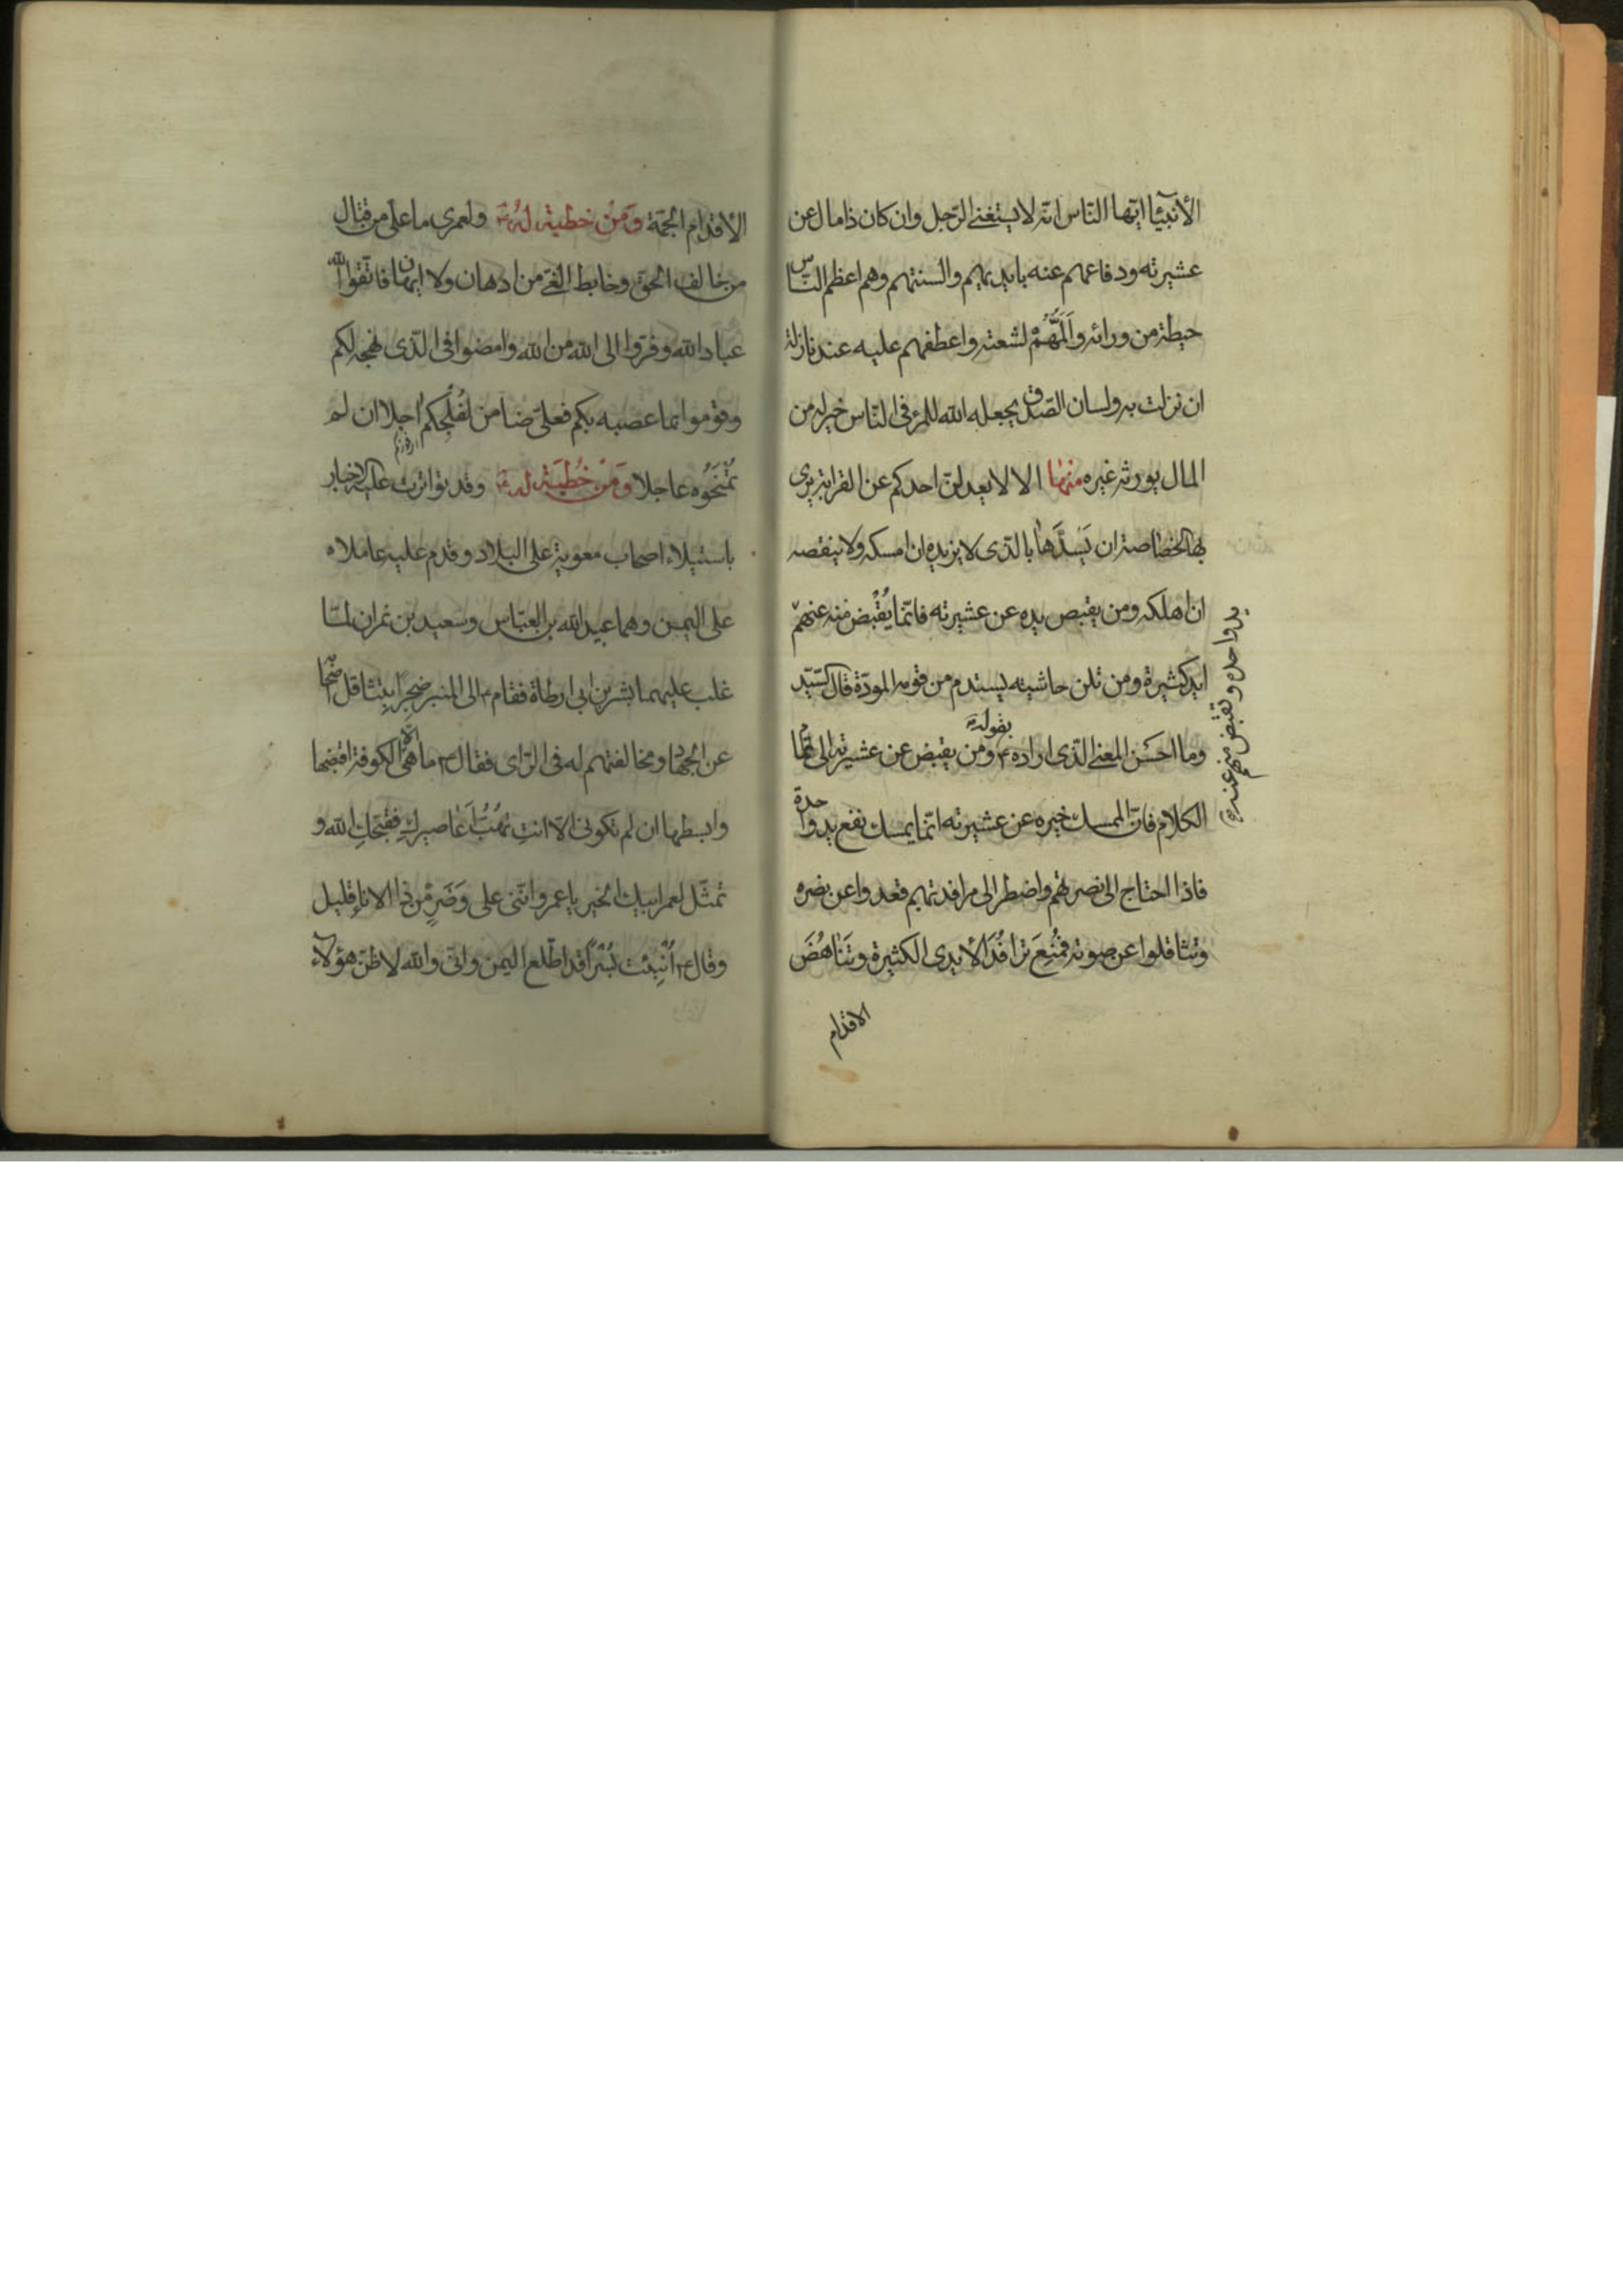 الأنبيآء ايّها النّاس انّه لا يستغنى الرّجل وان كان ذا مال عن
عشيرته ودفاعهم عنه بايديهم والسنتهم وهم اعظم النّاس
حيطة من ورائه وَاَلَمُّهُمْ لشعثه واعطفهم عليه عند نازلة
ان نزلت به ولسان الصّدق يجعله الله للمرء فى النّاس خير له من
المال يورثه غيره منها الا لا يعدلنّ احدكم عن القرابة يرى
بها الخصاصة ان يَسُدَّها بالّذى لا يزيده ان امسكه ولا ينقصه
ان اهلكه ومن يقبض يده عن عشيرته فانّما يُقْبَض منه عنهم
يد واحدة وتقبض منهم عنه
ايد كثيرة ومن تلن حاشيته يستدم من قومه المودّة قال السّيّد
وما احسَن المعنى الّذى اراده ع بقوله ومن يقبض عن عشيرته الى تمام
الكلام فانّ الممسك خيره عن عشيرته انّما يمسك نفع يد واحدة
فاذا احتاج الى نصرتهم واضطر الى مرافدتهم قعدوا عن نصره
وتثاقلوا عن صوته فمُنِعَ ترافُدَ الأيدى الكثيرة وتَنَاهُضَ
الاقدام
الأقدام الجمّة وَمِنْ خطبة له ولعمرى ما علىّ من قتال
من خالف الحق وخابط الغىّ من ادهان ولا ايهان فاتّقوا الله
عباد الله وفرّوا الى الله من الله وامضوا فى الّذى نهجه لكم
وقوموا بما عصبه بكم فعلىّ ضامن لفُلْجِكم اجلا ان لم
تُمْنَحُوه عاجلا وَمِنْ خُطْبَة له وقد تواترت عليه الاخبار
باستيلاء اصحاب معوية على البلاد وقدم عليه عاملاه
على اليمن وهما عبيد الله بن العبّاس وسعيد بن نمران لمّا
غلب عليهما بسر بن ابى ارطاة فقام ع الى المنبر ضَجِرًا بتثاقل اصحابه
عن الجهاد ومخالفتهم له فى الرّاى فقال ع ما هى الّا الكوفة اقبضها
وابسطها ان لم تكونى الا انتِ تهُبُّ اَعَاصيركِ فقبّحكِ الله و
تمثّل لعمر ابيك الخير يا عمرو انّنى على وَضَرٍ من ذا الاناءِ قليل
وقال ع اُنْبِئت بُسْرًا قد اطّلع اليمن وانّى والله لاظنّ هؤلآء